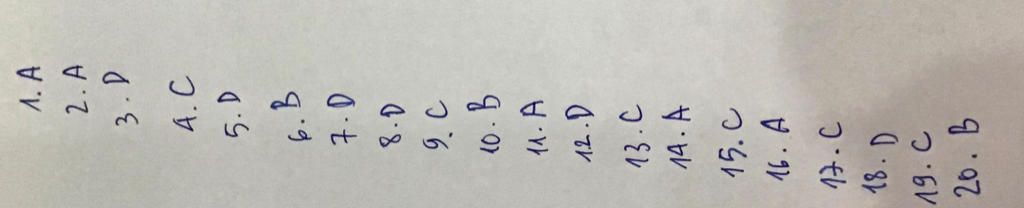 1. A
2. A
3. D
4. C
5. D
6. B
7. D
8. D
9. C
10. B
11. A
12. D
13. C
14. A
15. C
16. A
17. C
18. D
19. C
20. B